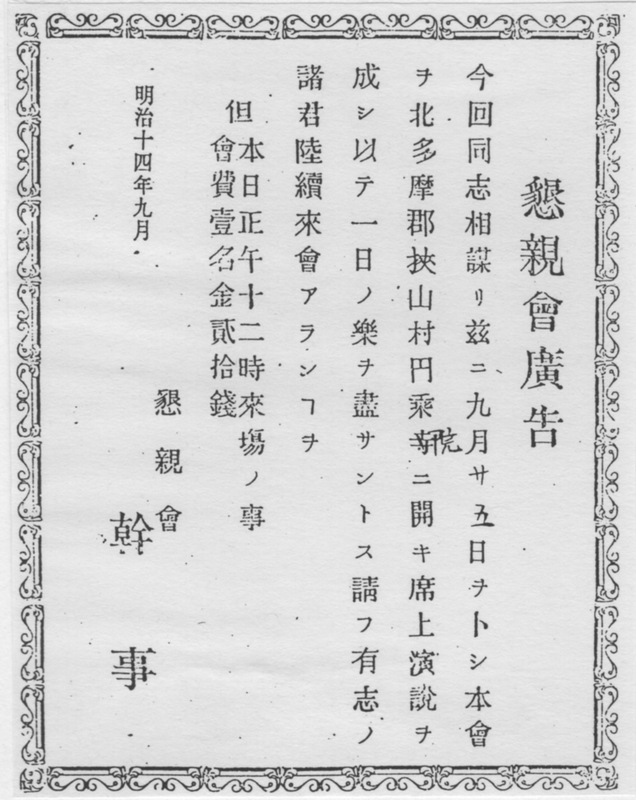 懇親會廣告
今回同志相謀リ玆ニ九月廿五日ヲトシ本會
ヲ北多摩郡挾山村円乘寺院ニ開キ席上演説ヲ
成シ以テ一日ノ樂ヲ盡サントス請フ有志ノ
諸君陸續來會アランヿヲ
但本日正午十二時來塲ノ事
會費壹名金貳拾錢
明治十四年九月
懇親會
幹事